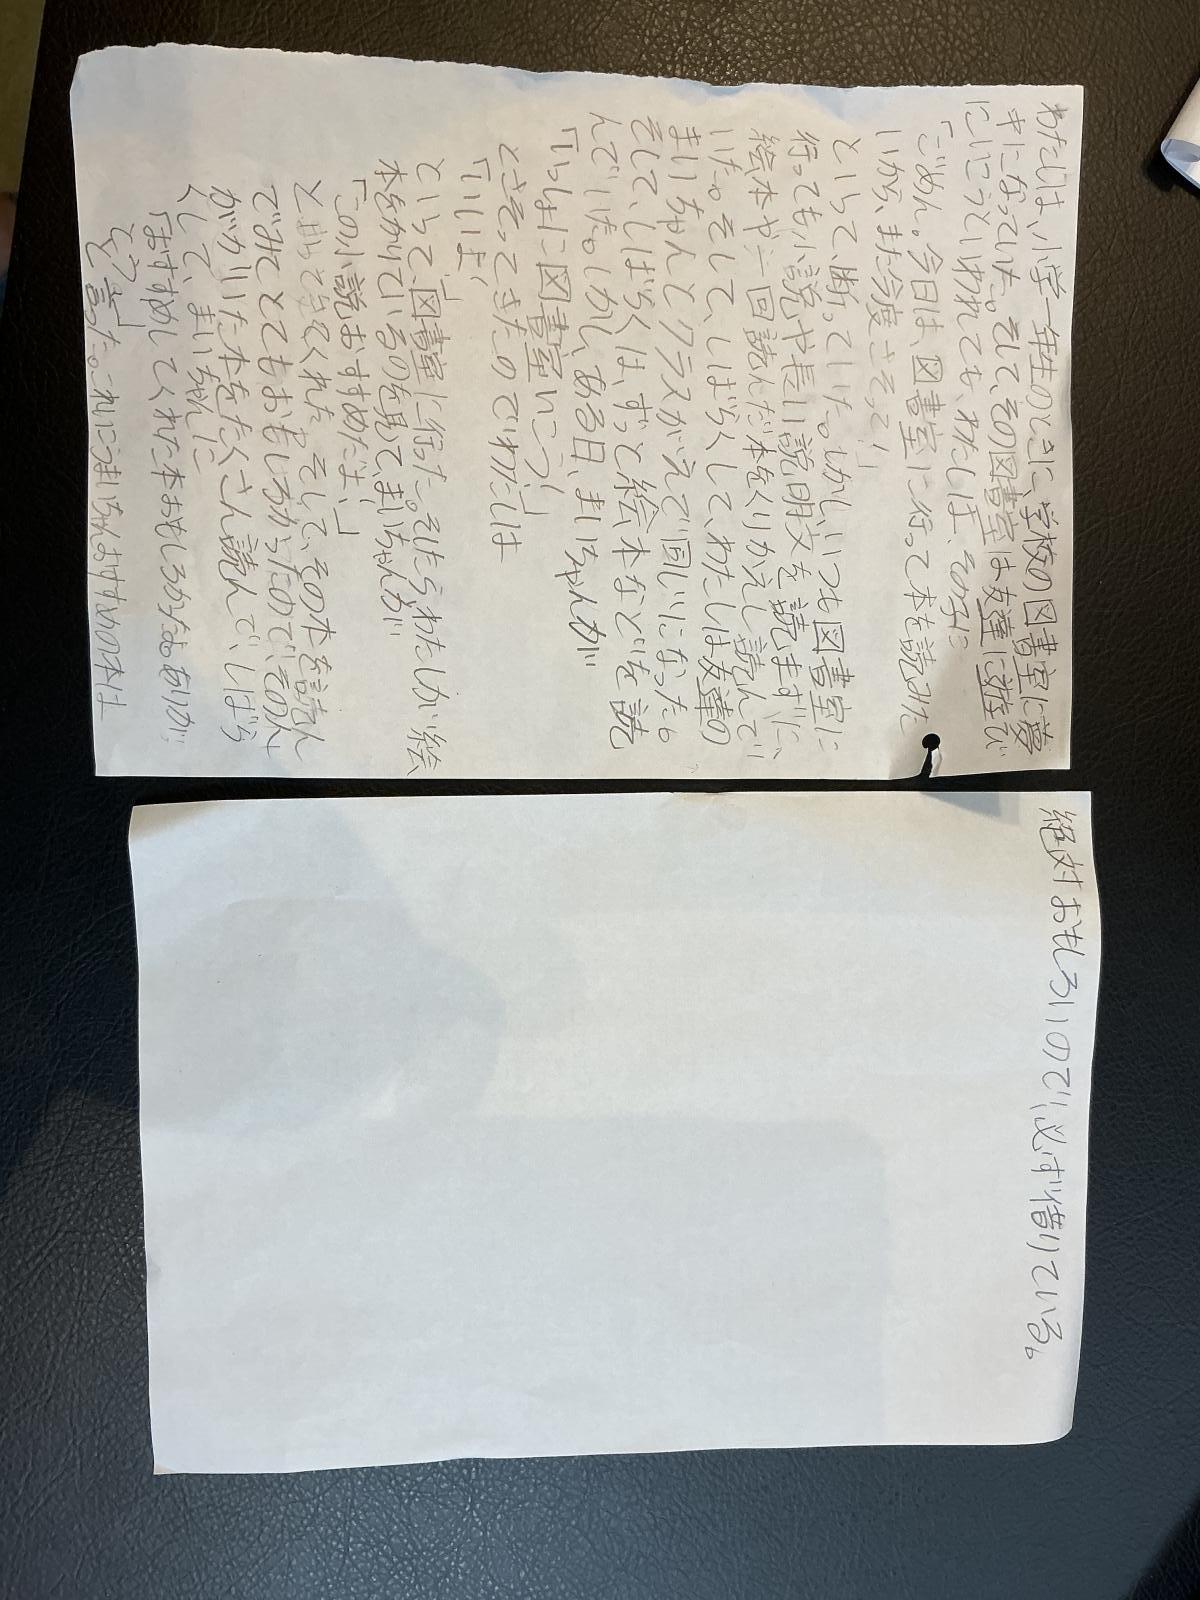 わたしは、小学一年生のときに、学校の図書室に夢
中になっていた。そして、その図書室は友達に遊び
にいこうといわれても、わたしは、その子に
「ごめん。今日は、図書室に行って本を読みた
いから、また今度さそって！」
といって、断っていた。しかし、いつも図書室に
行っても小説や長い説明文を読まずに、
絵本や一回読んだ本をくりかえし読んで
いた。そして、しばらくして、わたしは友達の
まいちゃんとクラスがえで同じになった。
そして、しばらくは、ずっと絵本などを読
んでいた。しかし、ある日、まいちゃんが
「いっしょに図書室いこう！」
とさそってきたのでわたしは
「いいよ」
といって、図書室に行った。そしたらわたしが絵
本をかりているのを見て、まいちゃんが
「この小説おすすめだよ、」
と言ってくれた。そして、その本を読ん
でみてとてもおもしろかったので、その人
がかいた本をたくさん読んで、しばら
くして、まいちゃんに
「おすすめしてくれた本おもしろかったよありが
とう」
と言った。これにつまいちゃんおすすめの本は
絶対おもしろいので、必ず借りている。